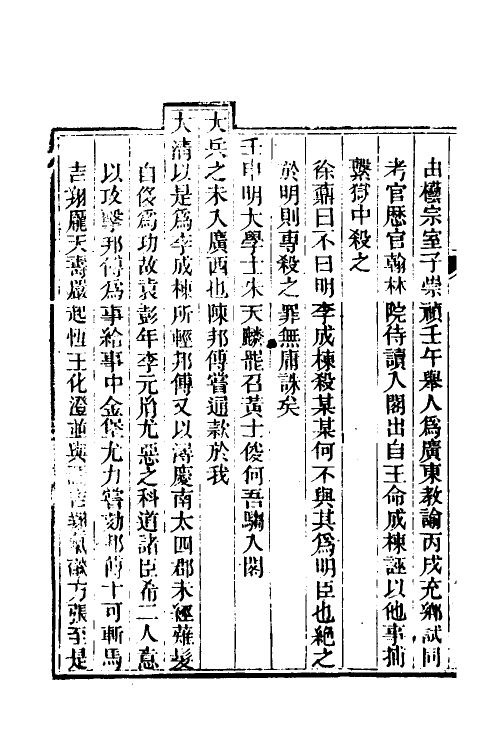 由櫷宗室子崇禎壬午舉人爲廣東教諭丙戌充鄉試同
考官歷官翰林院侍讀入閣出自王命成棟誣以他事捕
繫獄中殺之
徐鼒曰不曰明李成棟殺某某何不與其爲明臣也絕之
於明則專殺之罪無庸誅矣
壬申明大學士朱天麟罷召黃士俊何吾騶入閣
大兵之未入廣西也陳邦傅嘗通款於我
大清以是爲李成棟所輕邦傅又以潯慶南太四郡未經薙髮
自侈爲功故袁彭年李元胤尤惡之科道諸臣希二人意
以攻擊邦傅爲事給事中金堡尤力嘗劾邦傅十可斬馬
吉翔龐天壽嚴起恆王化澄並與焉吉翔氣燄方張至是